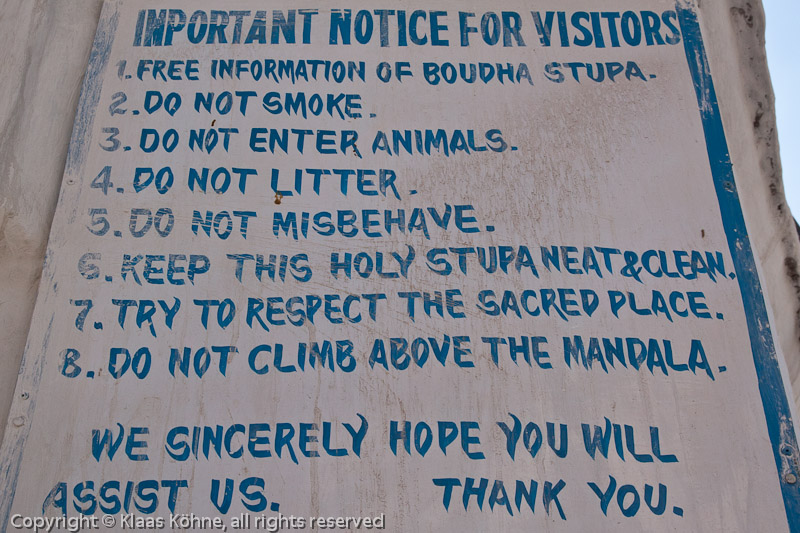 INPORTANT NOTICE FOR VISITORS
1. FREE INFORMATION OF BOUDHA STUPA.
2. DO NOT SMOKE.
3. DO NOT ENTER ANIMALS.
4. DO NOT LITTER.
5. DO NOT MISBEHAVE.
6. KEEP THIS HOLY STUPA NEAT & CLEAN.
7. TRY TO RESPECT THE SACRED PLACE.
8. DO NOT CLIMB ABOVE THE MANDALA.
WE SINCERELY HOPE YOU WILL
ASSIST US. THANK YOU.
Copyright © Klaas Köhne, all rights reserved